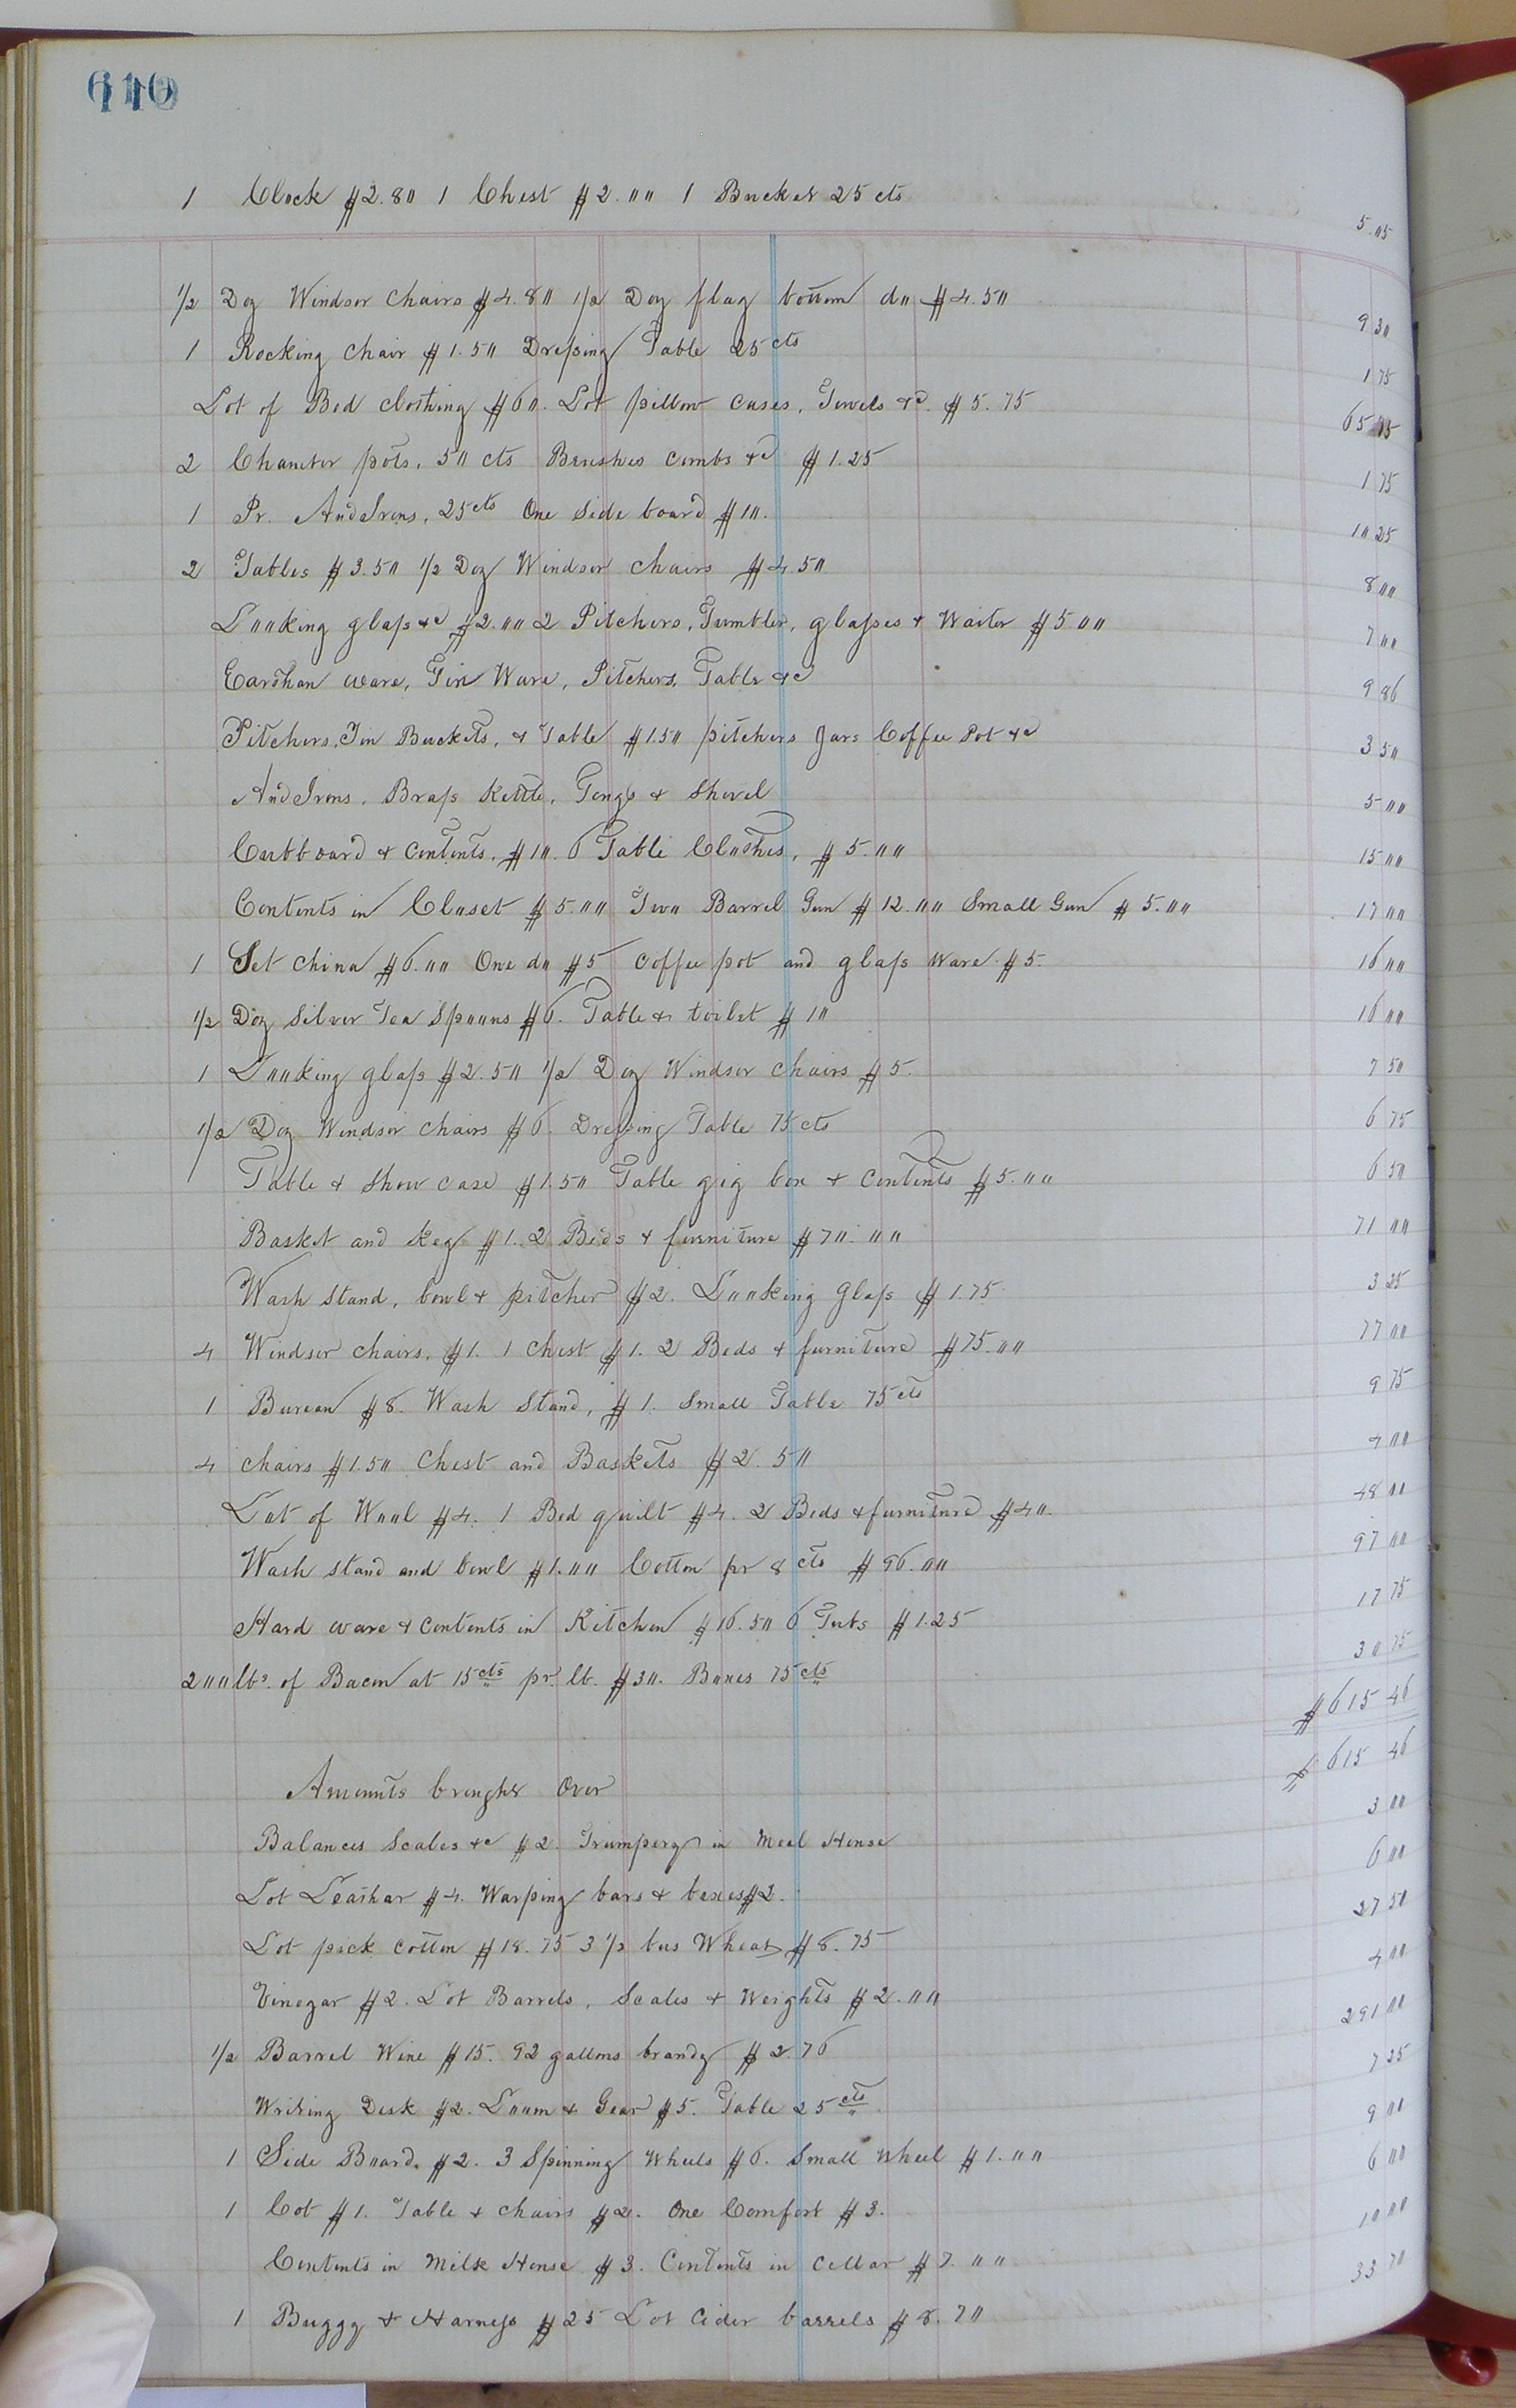 610
1 Clock $2.80 1 Chest $2.00 1 Bucket 25 cts 5.05
1/2 Doz Windsor Chairs $4.80 1/2 Doz flag bottom do $4.50 9 30
1 Rocking chair $1.50 Dressing Table 25 cts 1 75
Lot of Bed clothing $60. Lot pillow cases, Towels &c. $5.75 65 75
2 Chamber pots, 50 cts Brushes combs &c $1.25 1 75
1 Pr. AndIrons, 25 cts One Side board $10. 10 25
2 Tables $3.50 1/2 Doz Windsor chairs $4.50 8 00
Looking glass &c $2.00 2 Pitchers, Tumbler, glasses & Waiter $5.00 7 00
Earthan ware, Tin Ware, Pitchers, Table &c 9 86
Pitchers, Tin Buckets, & Table $1.50 pitchers Jars Coffee Pot &c 3 50
AndIrons, Brass Kettle, Tongs & Shovel 5 00
Cubboard & contents, $10. 6 Table Cloths, $5.00 15 00
Contents in Closet $5.00 Two Barrel Gun $12.00 Small Gun $5.00 17 00
1 Set china $6.00 One do $5 coffee pot and glass ware $5. 16 00
1/2 Doz Silver Tea Spoons $6. Table & toilet $10 16 00
1 Looking glass $2.50 1/2 Doz Windsor chairs $5. 7 50
1/2 Doz Windsor chairs $6. Dressing Table 75 cts 6 75
Table & Show case $1.50 Table gig box & contents $5.00 6 50
Basket and Keg $1. 2 Beds & furniture $70.00 71 00
Wash Stand, bowl & pitcher $2. Looking Glass $1.75 3 25
4 Windsor chairs, $1. 1 chest $1. 2 Beds & furniture $75.00 77 00
1 Bureau $8. Wash Stand, $1. Small Table 75 cts 9 75
4 chairs $1.50 Chest and Baskets $2.50 4 00
Lot of Wool $4. 1 Bed quilt $4. 2 Beds & furniture $40. 48 00
Wash stand and bowl $1.00 Cotton pr 8 cts $96.00 97 00
Hard ware & contents in Kitchen $16.50 6 Tubs $1.25 17 75
200 lbs. of Bacon at 15 cts pr. lb. $30. Boxes 75 cts 30 75
$615 46
Amounts brought Over $615 46
Balances Scales &c $2. Trumpery in Meal House 3 00
Lot Leathar $4. Warping bars & boxes $2. 6 00
Lot pick cotton $18.75 3 1/2 bus Wheat $8.75 27 50
Vinegar $2. Lot Barrels, Scales & Weights $2.00 4 00
1/2 Barrel Wine $15. 92 gallons brandy $2.76 291 00
Writing Desk $2. Loom & Gear $5. Table 25 cts 7 25
1 Side Board. $2. 3 Spinning Wheels $6. Small Wheel $1.00 9 00
1 Cot $1. Table & chairs $2. One Comfort $3. 6 00
Contents in Milk House $3. Contents in Cellar $7.00 10 00
1 Buggy & Harness $25 Lot Cider barrels $8.70 33 70